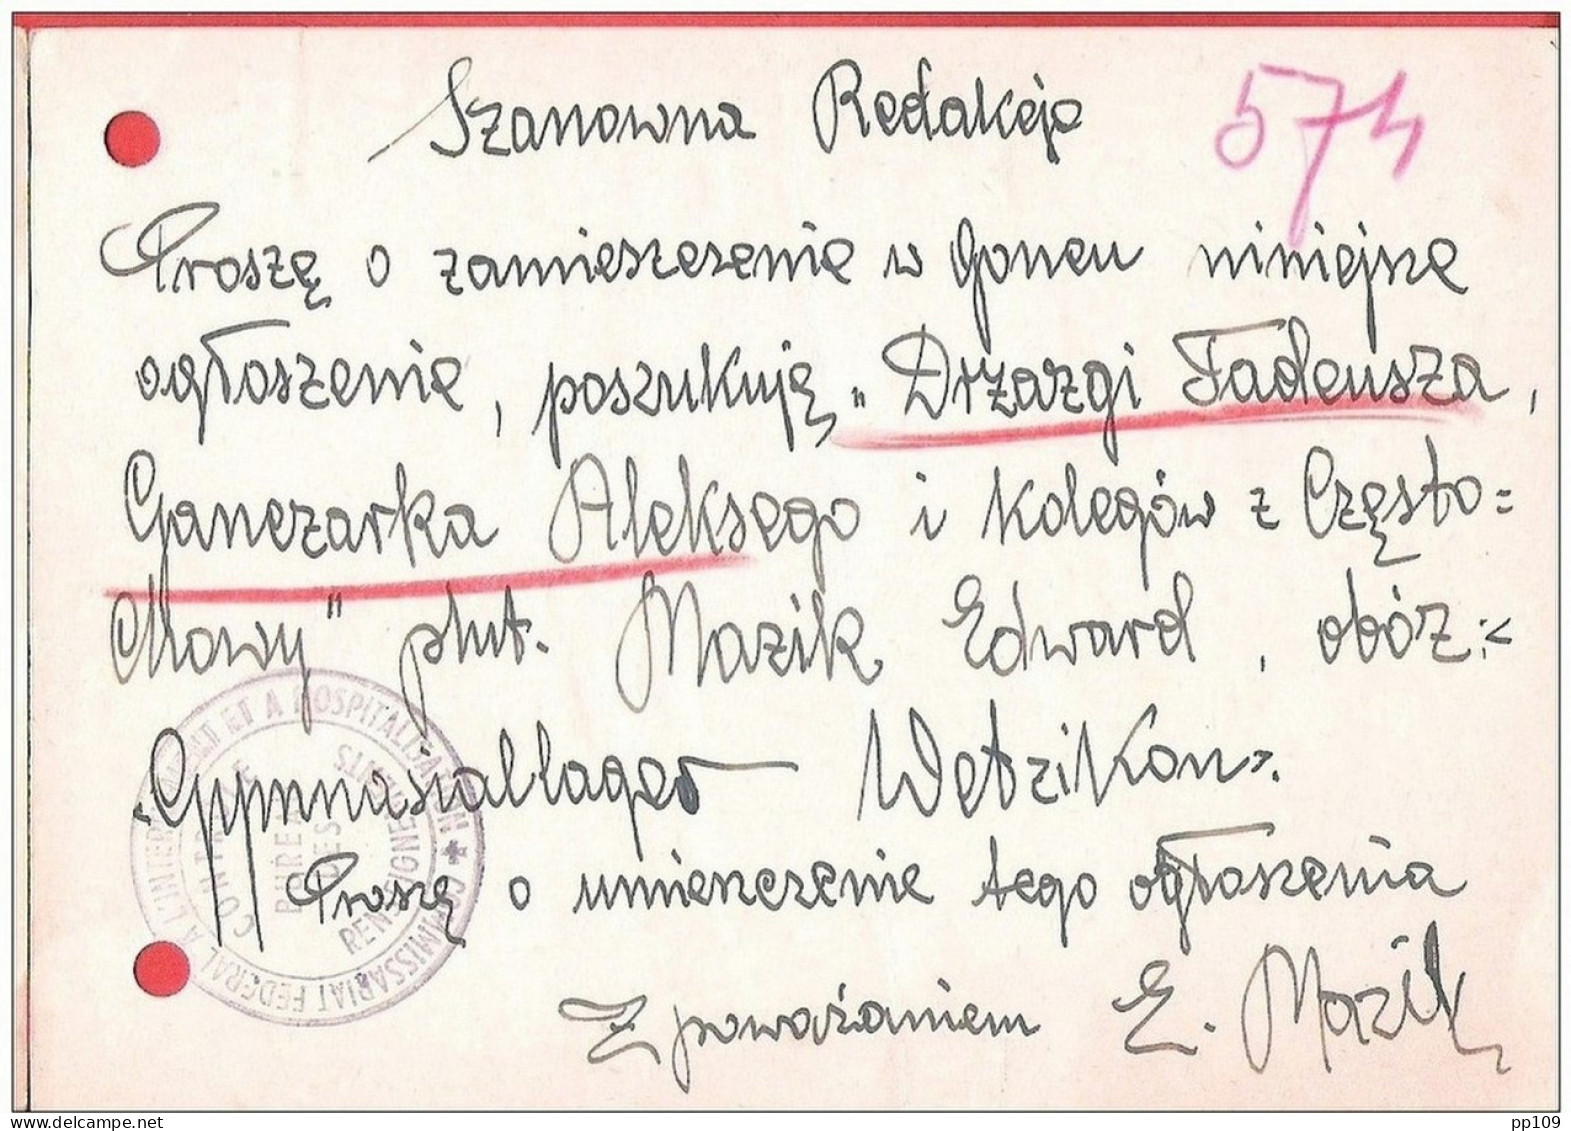 Szanowna Redakcjo
574
Proszę o zamieszczenie w Gońcu niniejsze
ogłoszenie, poszukuję „Drzazgi Tadeusza,
Ganczarka Aleksego i kolegów z Często=
chowy" plut. Mazik Edward, obóz:
"Gymnasiallager Wetzikon".
Proszę o umieszczenie tego ogłoszenia
Z poważaniem E. Mazik
COMMISSARIAT FEDERAL A L'INTERNEMENT ET A L'HOSPITALISATION
CENTRALE
BUREAU
DES
RENSEIGNEMENTS
www.delcampe.net
pp109